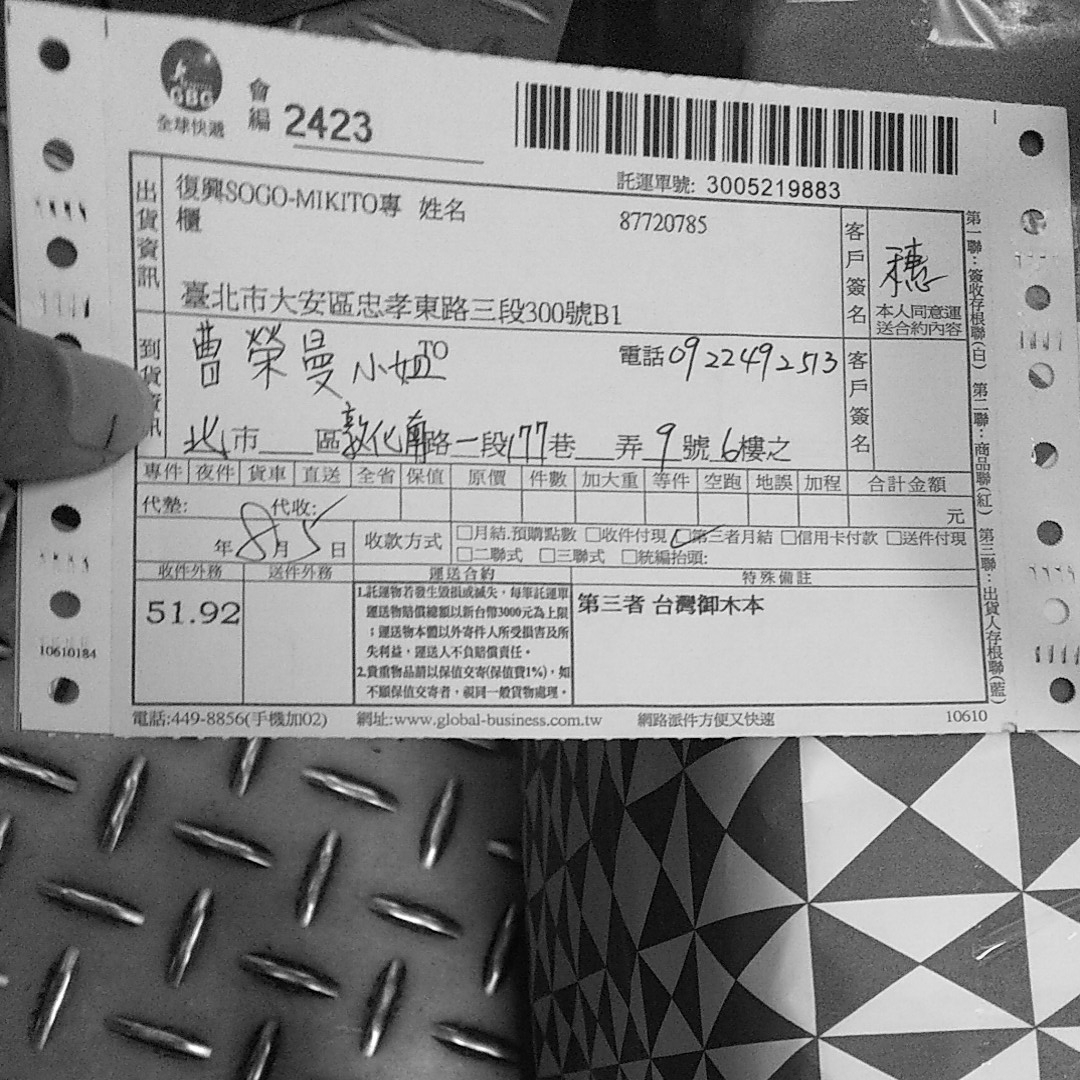 GBG
全球快遞
會編 2423
託運單號: 3005219883
出貨資訊
復興SOGO-MIKITO專櫃 姓名 87720785
臺北市大安區忠孝東路三段300號B1
客戶簽名
穗
本人同意運送合約內容
到貨資訊
曹榮曼小姐 TO 電話0922492513
北市 區敦化南路一段177巷 弄9號6樓之
客戶簽名
專件 夜件 貨車 直送 全省 保值 原價 件數 加大重 等件 空跑 地誤 加程 合計金額
代墊: 代收: 元
年8月5日 收款方式 □月結.預購點數 □收件付現 ☑第三者月結 □信用卡付款 □送件付現
□二聯式 □三聯式 □統編抬頭:
收件外務 送件外務 運送合約 特殊備註
51.92
1.託運物若發生毀損或滅失，每筆託運單
運送物賠償總額以新台幣3000元為上限
；運送物本體以外寄件人所受損害及所
失利益，運送人不負賠償責任。
2.貴重物品請以保值交寄(保值費1%)，如
不願保值交寄者，視同一般貨物處理。
第三者 台灣御木本
第一聯：簽收存根聯(白) 第二聯：商品聯(紅) 第三聯：出貨人存根聯(藍)
10610184
電話:449-8856(手機加02) 網址:www.global-business.com.tw 網路派件方便又快速 10610